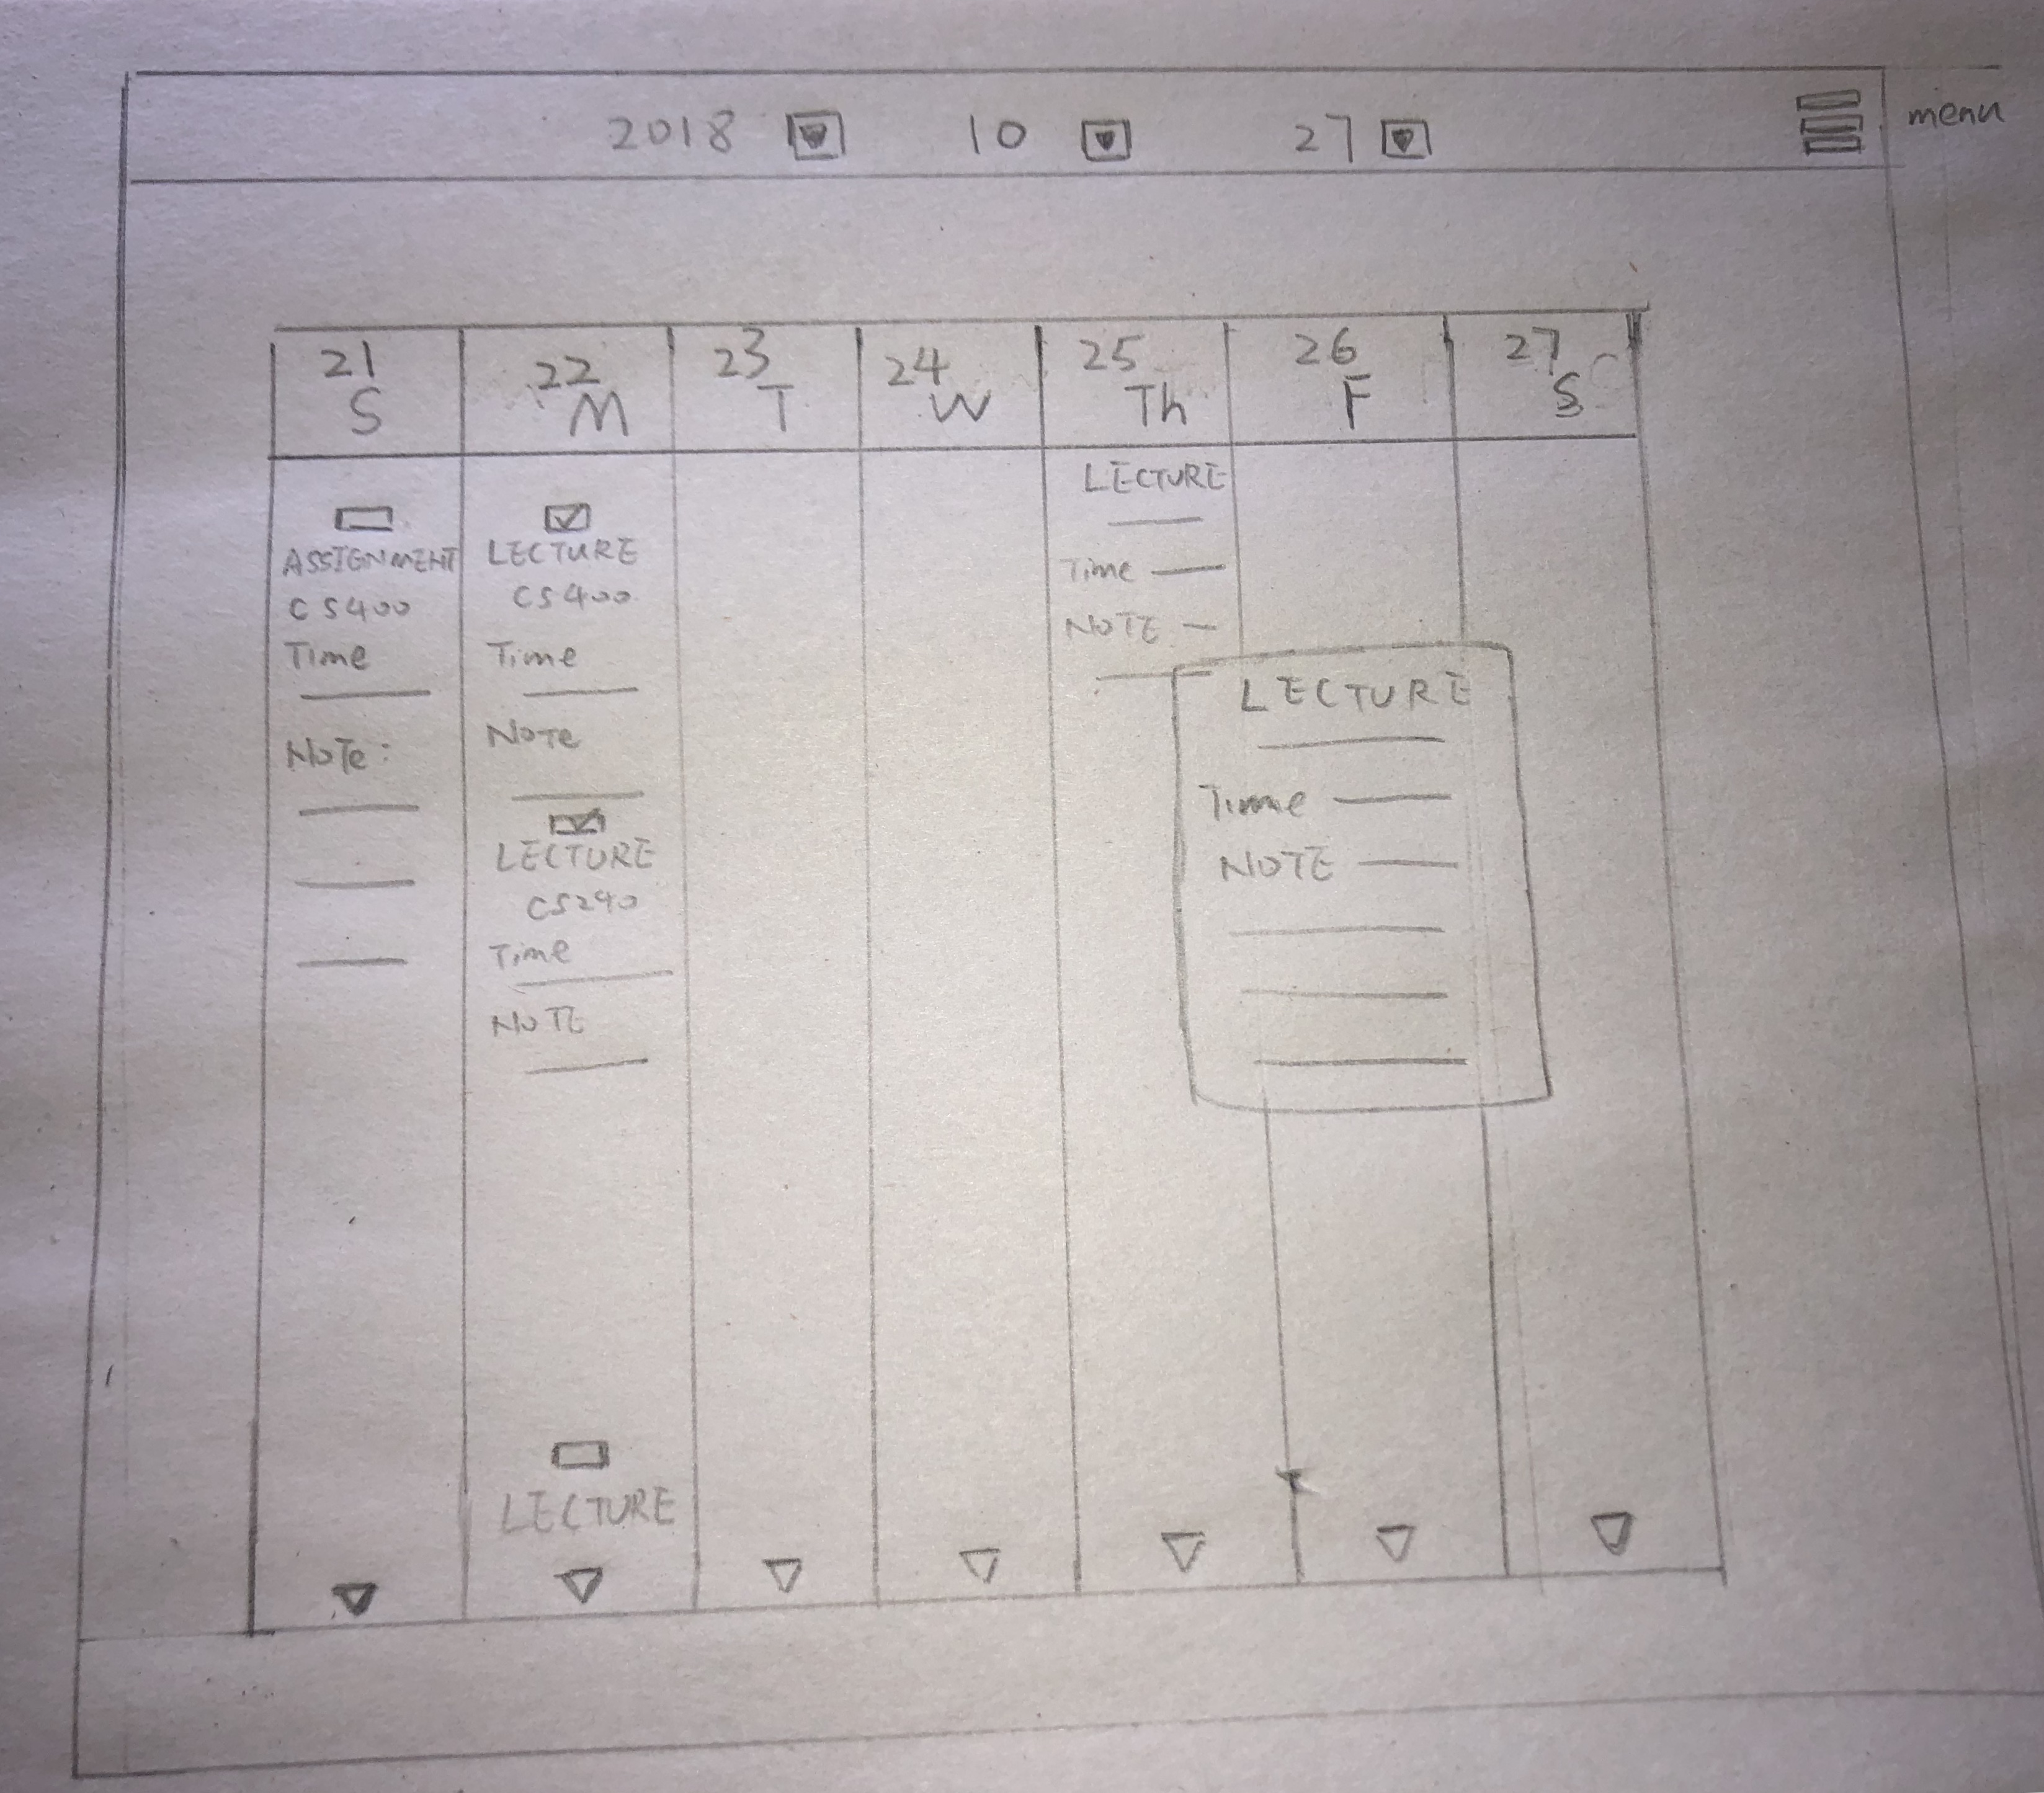 2018 10 27
menu
21 22 23 24 25 26 27
S M T W Th F S
ASSIGNMENT
CS400
Time
Note:
LECTURE
CS400
Time
Note
LECTURE
CS290
Time
NOTE
LECTURE
LECTURE
Time
NOTE
LECTURE
Time
NOTE